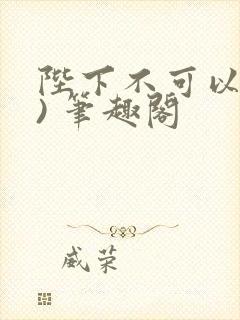 陛下不可以
)筆趣閣
威荣